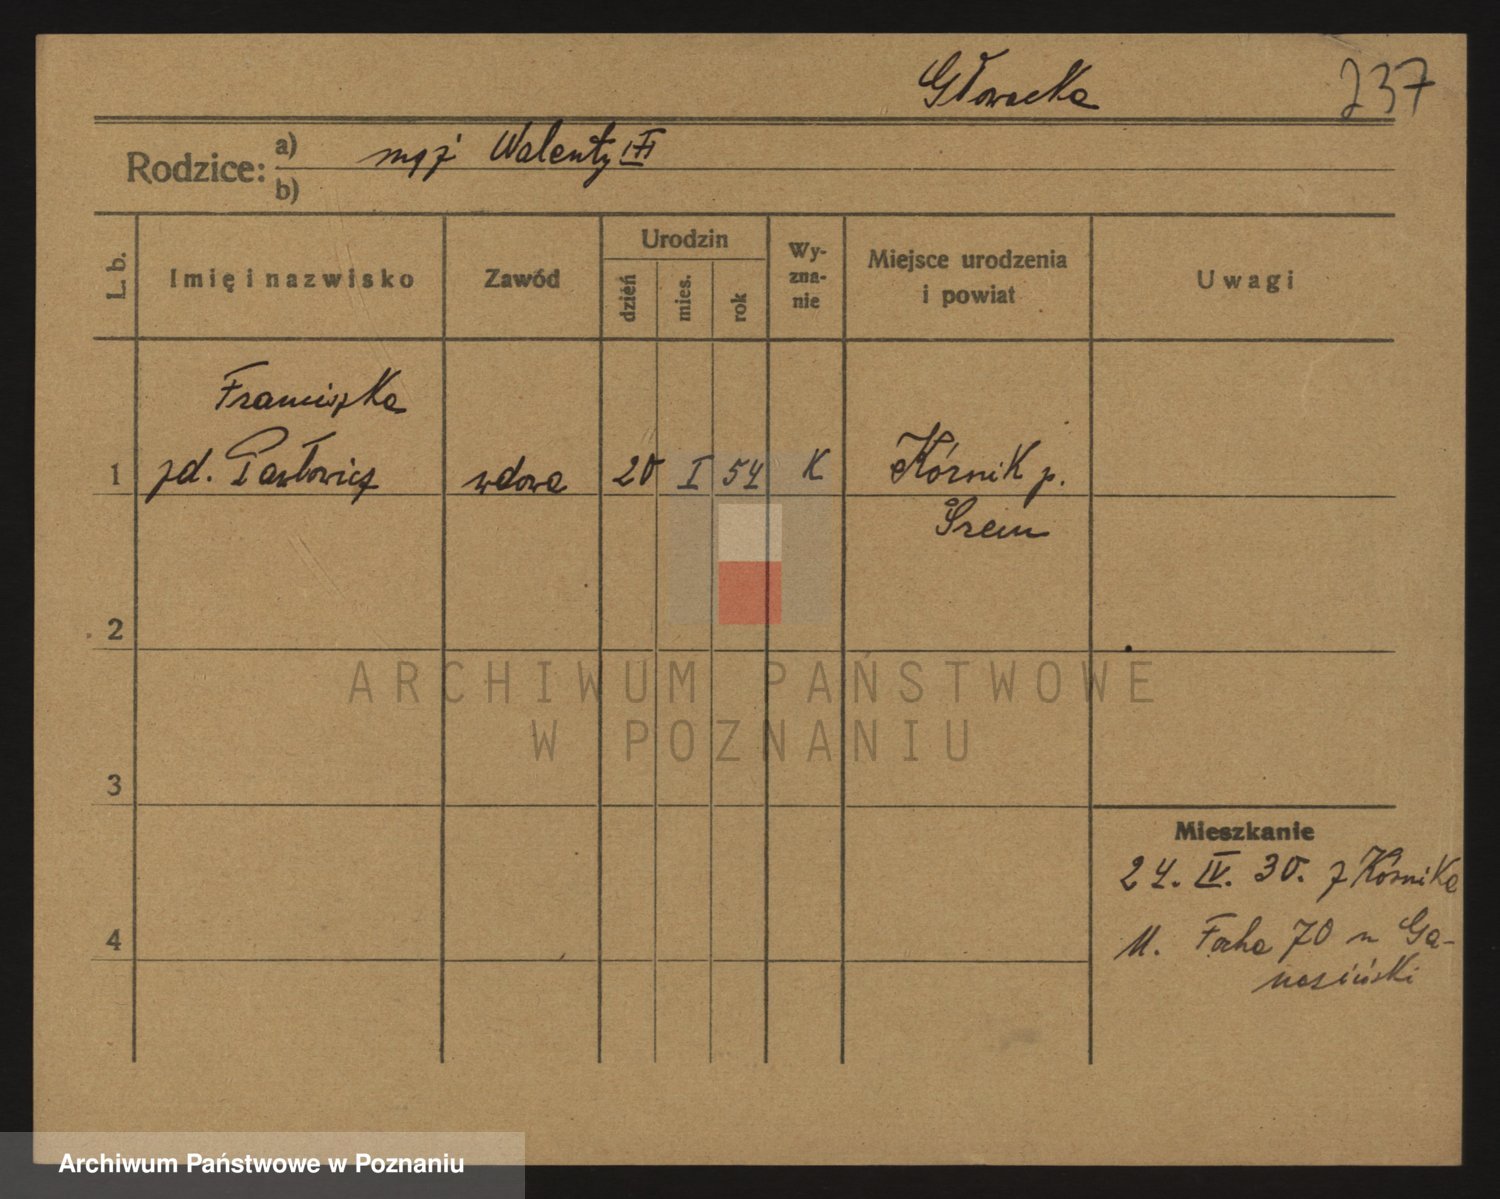 Głowacka
237
Rodzice: a) mąż Walenty
b)
L. b.
Imię i nazwisko
Zawód
Urodzin
dzień
mies.
rok
Wy-
zna-
nie
Miejsce urodzenia
i powiat
Uwagi
Franciszka
1 zd. Pawłowicz wdowa 20 I 54 K Kórnik p.
Śrem
2
ARCHIWUM PAŃSTWOWE
W POZNANIU
3
Mieszkanie
24. IV. 30. z Kórnika
4 M. Focha 70 n Ga-
nasiński
Archiwum Państwowe w Poznaniu